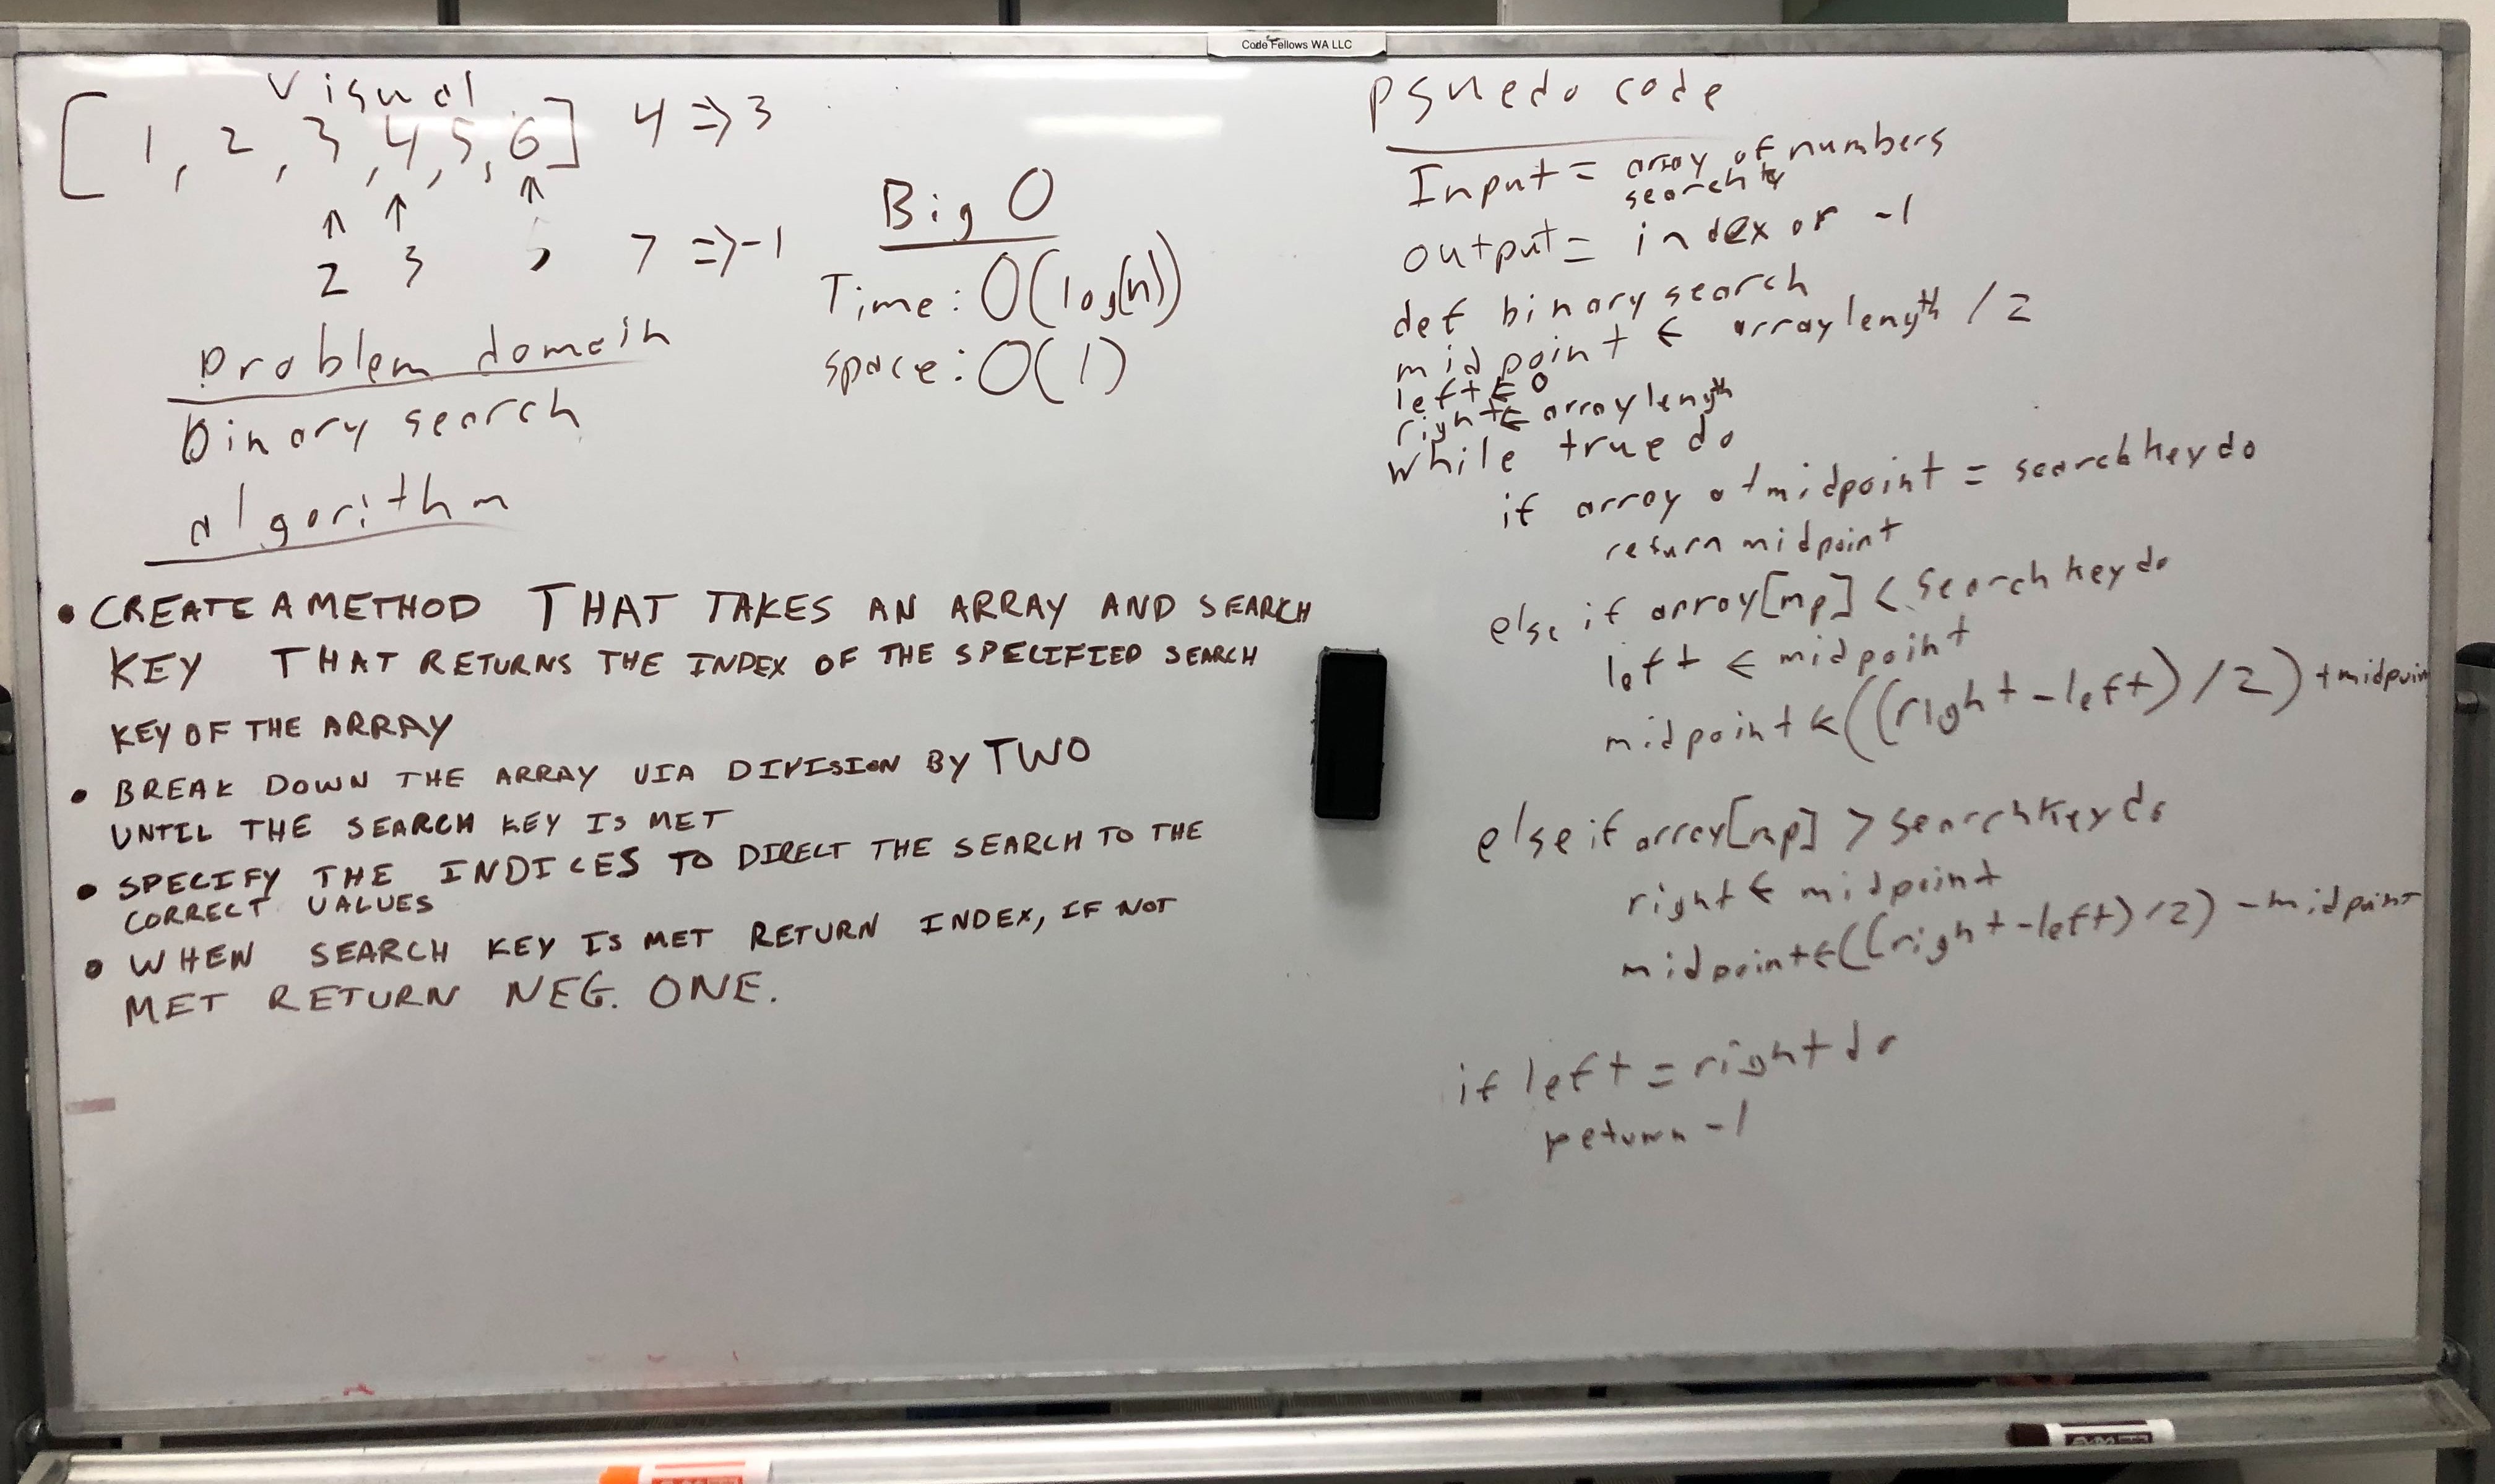 Code Fellows WA LLC
Visual
[1, 2, 3, 4, 5, 6] 4 => 3
↑ ↑ ↑
2 3 5 7 => -1
Big O
Time: O(log(n))
space: O(1)
problem domain
binary search
algorithm
• CREATE A METHOD THAT TAKES AN ARRAY AND SEARCH
KEY THAT RETURNS THE INDEX OF THE SPECIFIED SEARCH
KEY OF THE ARRAY
• BREAK DOWN THE ARRAY VIA DIVISION BY TWO
UNTIL THE SEARCH KEY IS MET
• SPECIFY THE INDICES TO DIRECT THE SEARCH TO THE
CORRECT VALUES
• WHEN SEARCH KEY IS MET RETURN INDEX, IF NOT
MET RETURN NEG. ONE.
psuedo code
Input = array of numbers
search key
output = index or -1
def binary search
midpoint ← array length / 2
left ← 0
right ← array length
while true do
if array at midpoint = search key do
return midpoint
else if array[mp] < search key do
left ← midpoint
midpoint ← ((right - left) / 2) + midpoint
else if array[mp] > search key do
right ← midpoint
midpoint ← ((right - left) / 2) - midpoint
if left = right do
return -1